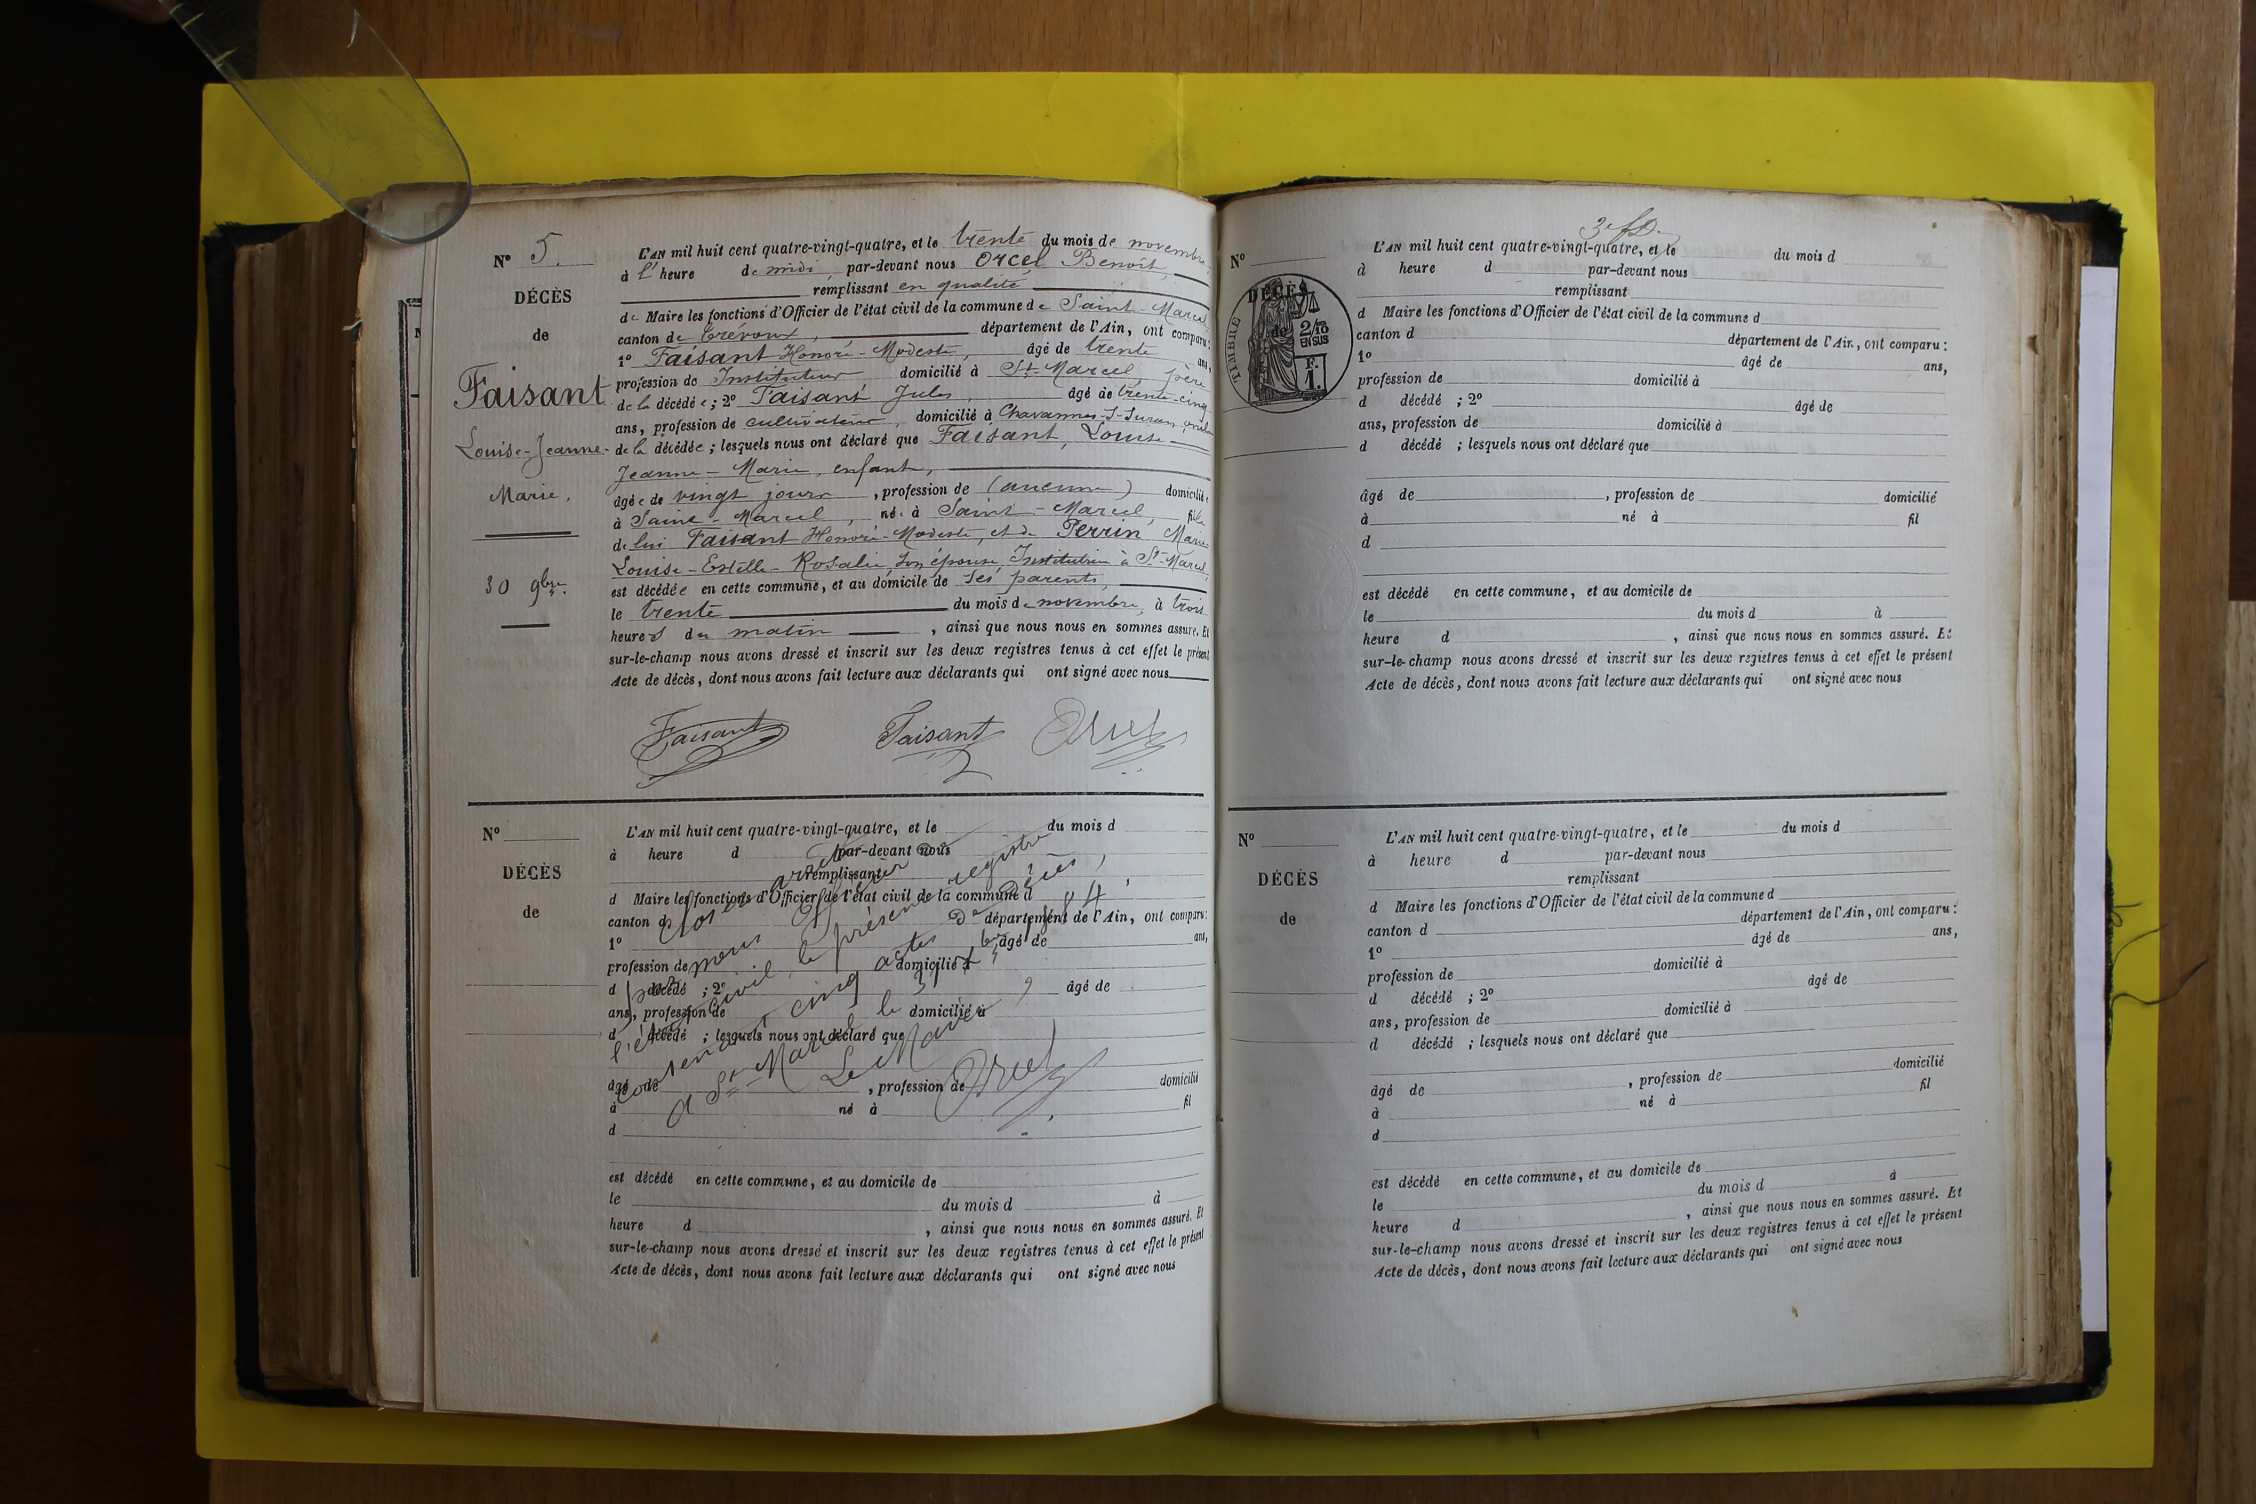 N° 5.
DÉCÈS
de
Faisant
Louise-Jeanne-
Marie.
30 9bre.
L'AN mil huit cent quatre-vingt-quatre, et le trente du mois de novembre
à l'heure de midi, par-devant nous Orcel Benoît,
remplissant en qualité
de Maire les fonctions d'Officier de l'état civil de la commune de Saint-Marcel
canton de Trévoux, département de l'Ain, ont comparu:
1° Faisant Honoré-Modeste, âgé de trente ans,
profession de Instituteur domicilié à St-Marcel, père
de la décédée; 2° Faisant Jules, âgé de trente-cinq
ans, profession de cultivateur, domicilié à Chavannes-s-Suran, oncle
de la décédée; lesquels nous ont déclaré que Faisant, Louise
Jeanne-Marie, enfant,
âgée de vingt jours, profession de (aucune) domiciliée
à Saint-Marcel, née à Saint-Marcel, fille
de lui Faisant Honoré-Modeste, et de Perrin Marie
Louise-Estelle-Rosalie, son épouse, Institutrice à St-Marcel,
est décédée en cette commune, et au domicile de ses parents,
le trente du mois de novembre, à trois
heures du matin, ainsi que nous nous en sommes assuré. Et
sur-le-champ nous avons dressé et inscrit sur les deux registres tenus à cet effet le présent
Acte de décès, dont nous avons fait lecture aux déclarants qui ont signé avec nous
Faisant Faisant Orcel
N°
DÉCÈS
de
L'AN mil huit cent quatre-vingt-quatre, et le du mois d
à heure d par-devant nous
remplissant
d Maire les fonctions d'Officier de l'état civil de la commune d
canton d département de l'Ain, ont comparu:
1° âgé de ans,
profession de domicilié à
d décédé ; 2° âgé de
ans, profession de domicilié à
d décédé ; lesquels nous ont déclaré que
âgé de , profession de domicilié
à né à fil
d
est décédé en cette commune, et au domicile de
le du mois d à
heure d , ainsi que nous nous en sommes assuré. Et
sur-le-champ nous avons dressé et inscrit sur les deux registres tenus à cet effet le présent
Acte de décès, dont nous avons fait lecture aux déclarants qui ont signé avec nous
Clos et arrêté
par nous Officier de
l'état civil, le présent registre
contenant cinq actes de Décès,
à St-Marcel le 31 Xbre 1884,
Le Maire,
Orcel
3e
N°
DÉCÈS
de
TIMBRE
2/10
EN SUS
F.
1.
L'AN mil huit cent quatre-vingt-quatre, et le du mois d
à heure d par-devant nous
remplissant
d Maire les fonctions d'Officier de l'état civil de la commune d
canton d département de l'Ain, ont comparu:
1° âgé de ans,
profession de domicilié à
d décédé ; 2° âgé de
ans, profession de domicilié à
d décédé ; lesquels nous ont déclaré que
âgé de , profession de domicilié
à né à fil
d
est décédé en cette commune, et au domicile de
le du mois d à
heure d , ainsi que nous nous en sommes assuré. Et
sur-le-champ nous avons dressé et inscrit sur les deux registres tenus à cet effet le présent
Acte de décès, dont nous avons fait lecture aux déclarants qui ont signé avec nous
N°
DÉCÈS
de
L'AN mil huit cent quatre-vingt-quatre, et le du mois d
à heure d par-devant nous
remplissant
d Maire les fonctions d'Officier de l'état civil de la commune d
canton d département de l'Ain, ont comparu:
1° âgé de ans,
profession de domicilié à
d décédé ; 2° âgé de
ans, profession de domicilié à
d décédé ; lesquels nous ont déclaré que
âgé de , profession de domicilié
à né à fil
d
est décédé en cette commune, et au domicile de
le du mois d à
heure d , ainsi que nous nous en sommes assuré. Et
sur-le-champ nous avons dressé et inscrit sur les deux registres tenus à cet effet le présent
Acte de décès, dont nous avons fait lecture aux déclarants qui ont signé avec nous